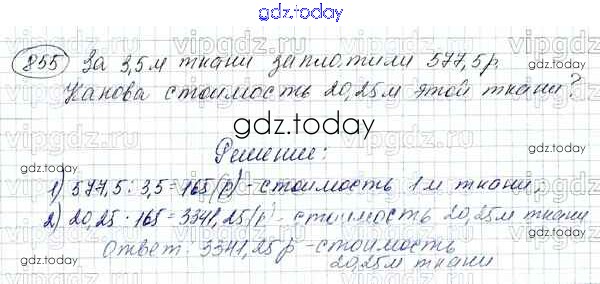 gdz.today
855 За 3,5м ткани заплатили 577,5р.
Какова стоимость 20,25м этой ткани?
gdz.today
Решение:
1) 577,5 : 3,5 = 165(р) - стоимость 1м ткани.
2) 20,25 · 165 = 3341,25(р) - стоимость 20,25м ткани
Ответ: 3341,25р - стоимость
20,25м ткани
gdz.today